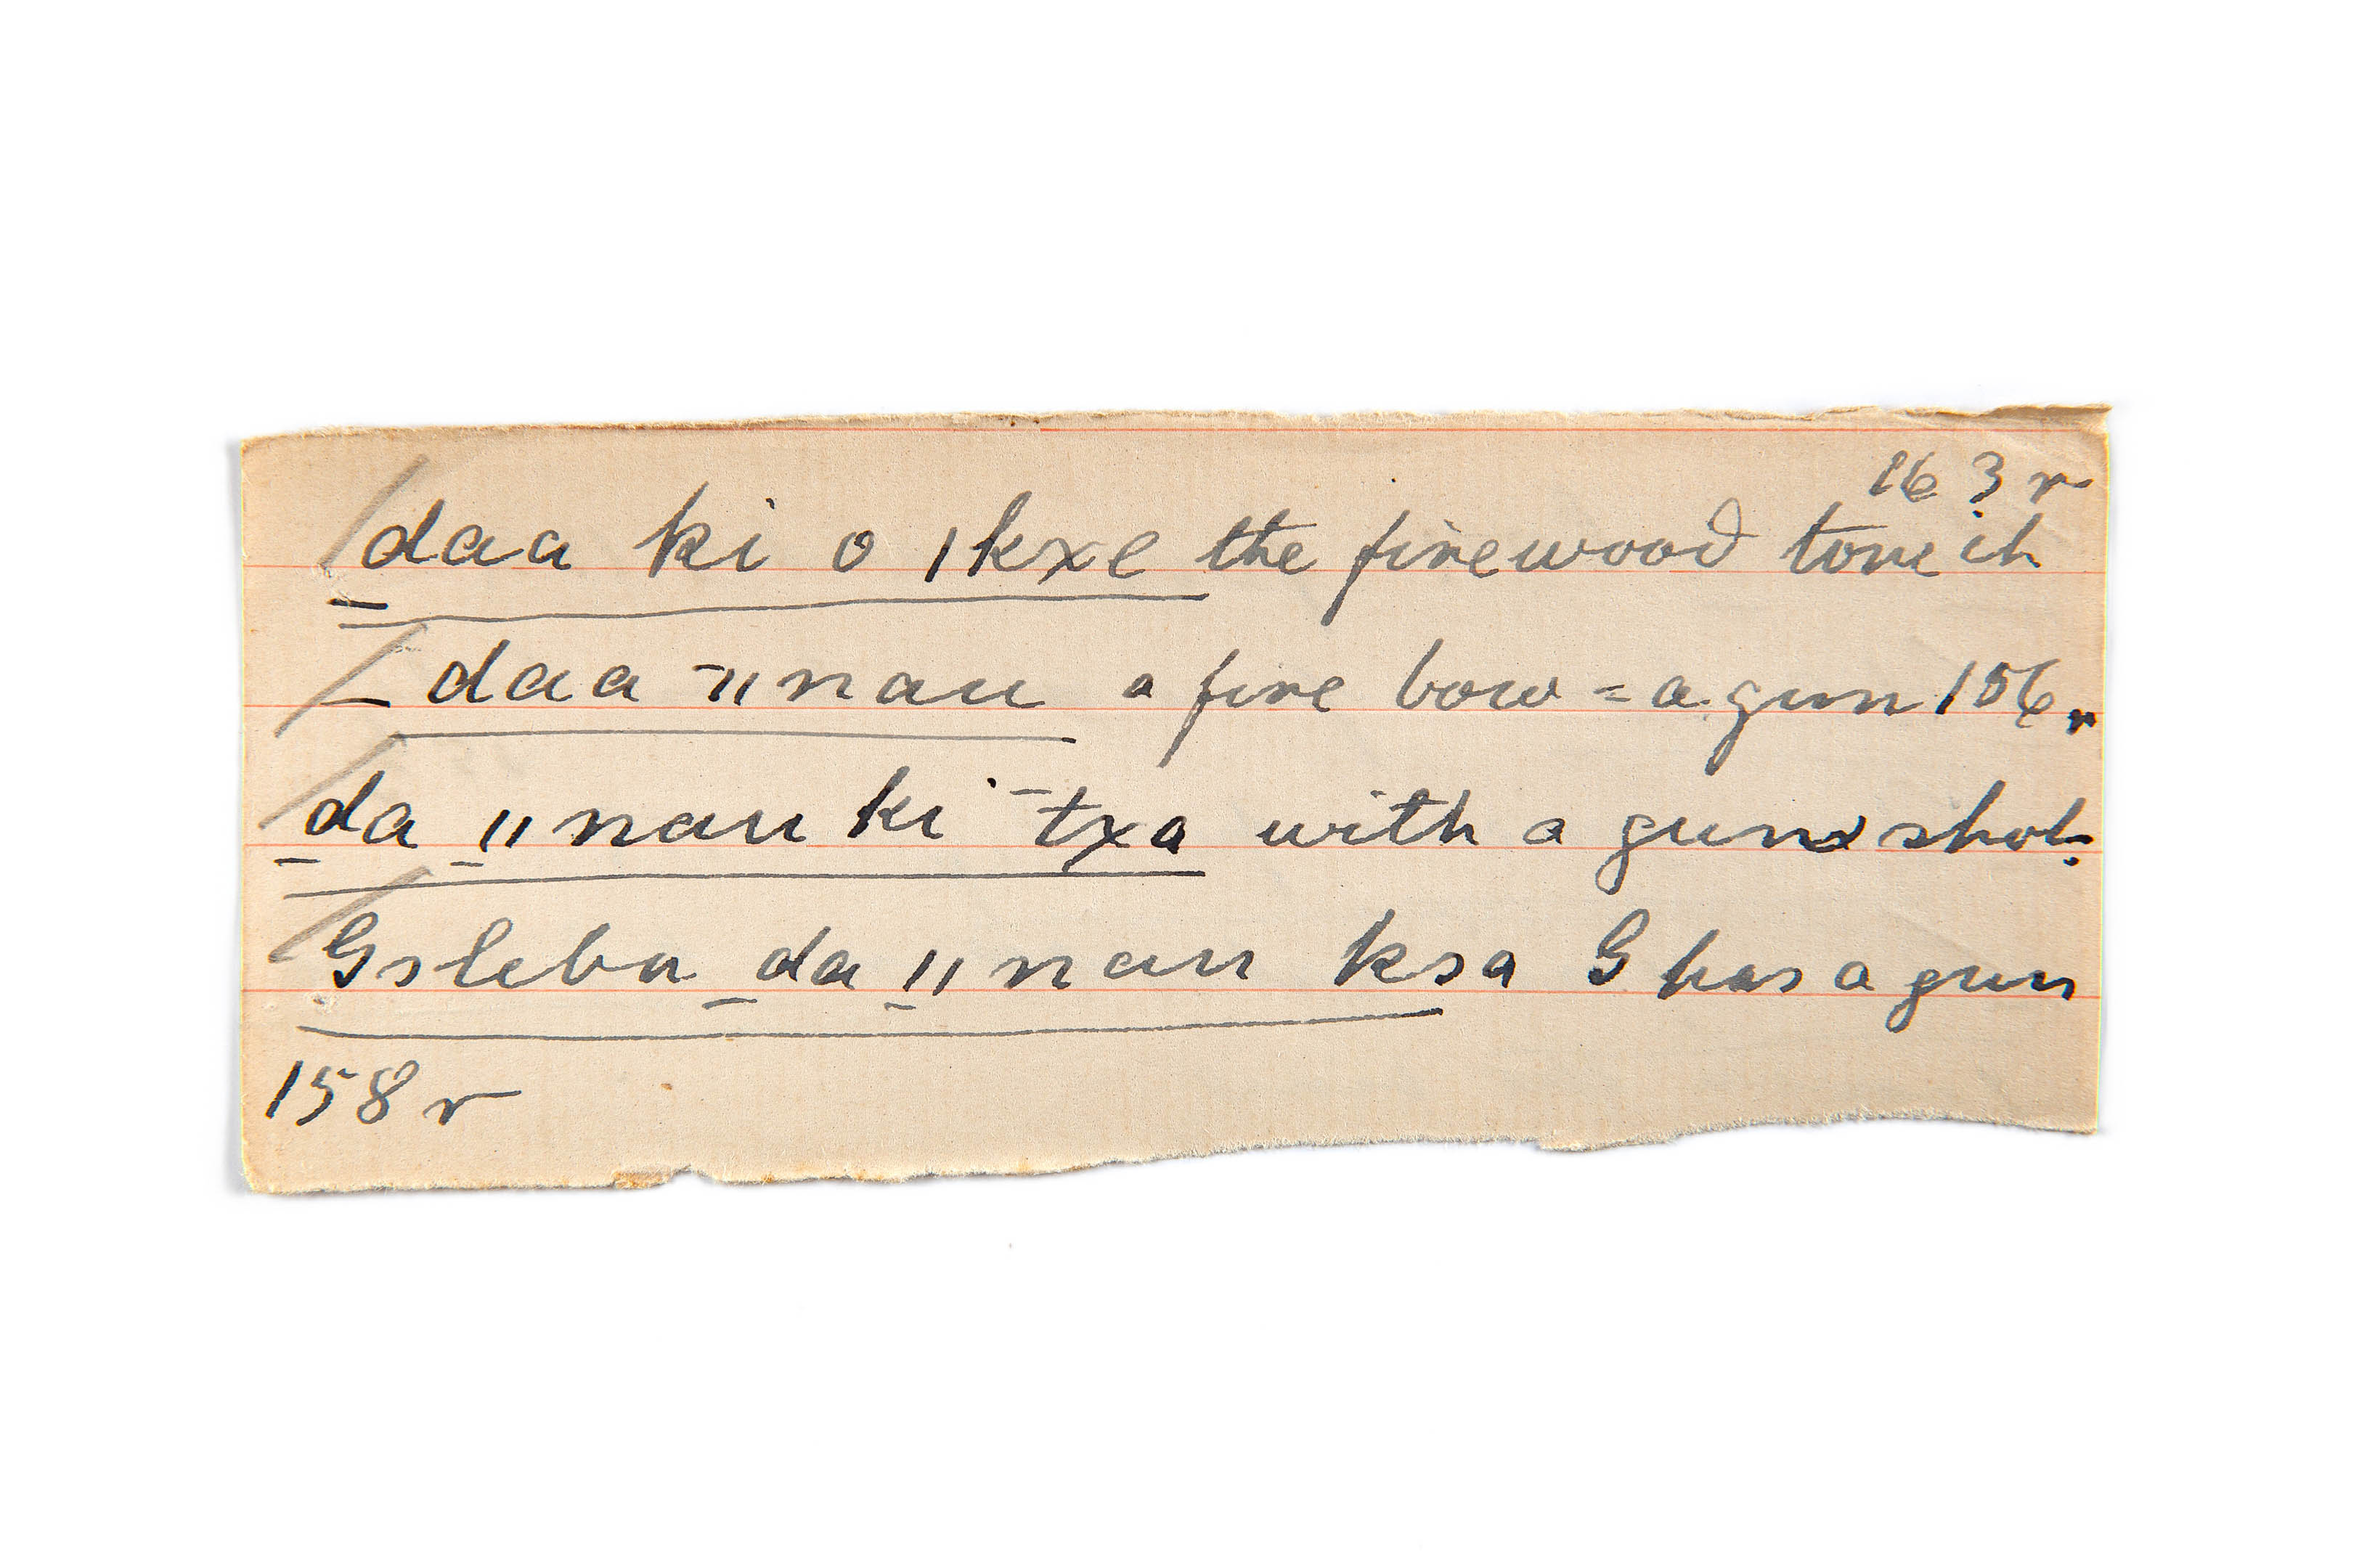 163 r
_daa ki o |kxe the firewood touch
_daa ¯||nau a fire bow = a gun 156 r
_da _||nau ki ¯txa with a gun shot
Gsleba _da _||nau ksa G has a gun
158 r